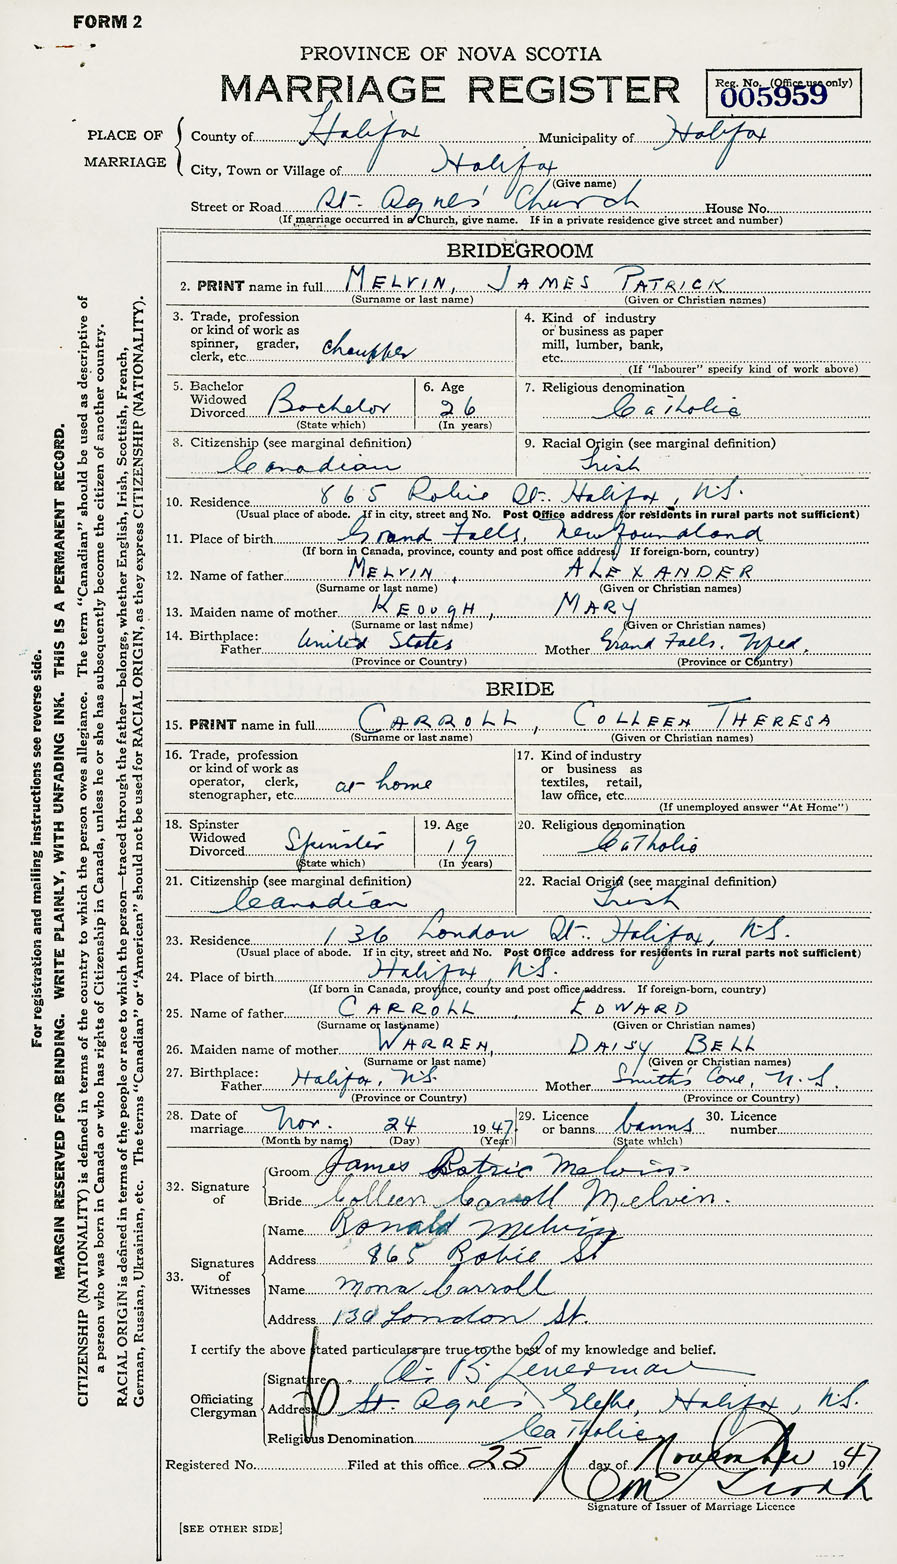 FORM 2
PROVINCE OF NOVA SCOTIA
MARRIAGE REGISTER
Reg. No. (Office use only)
005959
PLACE OF MARRIAGE
County of Halifax Municipality of Halifax
City, Town or Village of Halifax
(Give name)
Street or Road St. Agnes' Church House No.
(If marriage occurred in a Church, give name. If in a private residence give street and number)
BRIDEGROOM
2. PRINT name in full MELVIN, JAMES PATRICK
(Surname or last name) (Given or Christian names)
3. Trade, profession or kind of work as spinner, grader, clerk, etc. chauffer
4. Kind of industry or business as paper mill, lumber, bank, etc.
(If "labourer" specify kind of work above)
5. Bachelor Widowed Divorced Bachelor
(State which)
6. Age 26
(In years)
7. Religious denomination
Catholic
8. Citizenship (see marginal definition)
Canadian
9. Racial Origin (see marginal definition)
Irish
10. Residence 865 Robie St. Halifax, N.S.
(Usual place of abode. If in city, street and No. Post Office address for residents in rural parts not sufficient)
11. Place of birth Grand Falls, Newfoundland
(If born in Canada, province, county and post office address. If foreign-born, country)
12. Name of father MELVIN, ALEXANDER
(Surname or last name) (Given or Christian names)
13. Maiden name of mother KEOUGH, MARY
(Surname or last name) (Given or Christian names)
14. Birthplace:
Father United States Mother Grand Falls, Nfld.
(Province or Country) (Province or Country)
BRIDE
15. PRINT name in full CARROLL, COLLEEN THERESA
(Surname or last name) (Given or Christian names)
16. Trade, profession or kind of work as operator, clerk, stenographer, etc. at home
17. Kind of industry or business as textiles, retail, law office, etc.
(If unemployed answer "At Home")
18. Spinster Widowed Divorced Spinster
(State which)
19. Age 19
(In years)
20. Religious denomination
Catholic
21. Citizenship (see marginal definition)
Canadian
22. Racial Origin (see marginal definition)
Irish
23. Residence 136 London St. Halifax, N.S.
(Usual place of abode. If in city, street and No. Post Office address for residents in rural parts not sufficient)
24. Place of birth Halifax, N.S.
(If born in Canada, province, county and post office address. If foreign-born, country)
25. Name of father CARROLL, EDWARD
(Surname or last name) (Given or Christian names)
26. Maiden name of mother WARREN, DAISY BELL
(Surname or last name) (Given or Christian names)
27. Birthplace:
Father Halifax, N.S. Mother Smith's Cove, N.S.
(Province or Country) (Province or Country)
28. Date of marriage Nov. 24 1947
(Month by name) (Day) (Year)
29. Licence or banns banns
(State which)
30. Licence number
32. Signature of
Groom James Patric Melvin
Bride Colleen Carroll Melvin.
33. Signatures of Witnesses
Name Ronald Melvin
Address 865 Robie St
Name Mona Carroll
Address London St.
I certify the above stated particulars are true to the best of my knowledge and belief.
Officiating Clergyman
Signature B.
Address St. Agnes' Glebe, Halifax, N.S.
Religious Denomination Catholic
Registered No. Filed at this office 25 day of November 1947
Signature of Issuer of Marriage Licence
[SEE OTHER SIDE]
For registration and mailing instructions see reverse side.
MARGIN RESERVED FOR BINDING. WRITE PLAINLY, WITH UNFADING INK. THIS IS A PERMANENT RECORD.
CITIZENSHIP (NATIONALITY) is defined in terms of the country to which the person owes allegiance. The term "Canadian" should be used as descriptive of
a person who was born in Canada or who has rights of Citizenship in Canada, unless he or she has subsequently become the citizen of another country.
RACIAL ORIGIN is defined in terms of the people or race to which the person—traced through the father—belongs, whether English, Irish, Scottish, French,
German, Russian, Ukrainian, etc. The terms "Canadian" or "American" should not be used for RACIAL ORIGIN, as they express CITIZENSHIP (NATIONALITY).